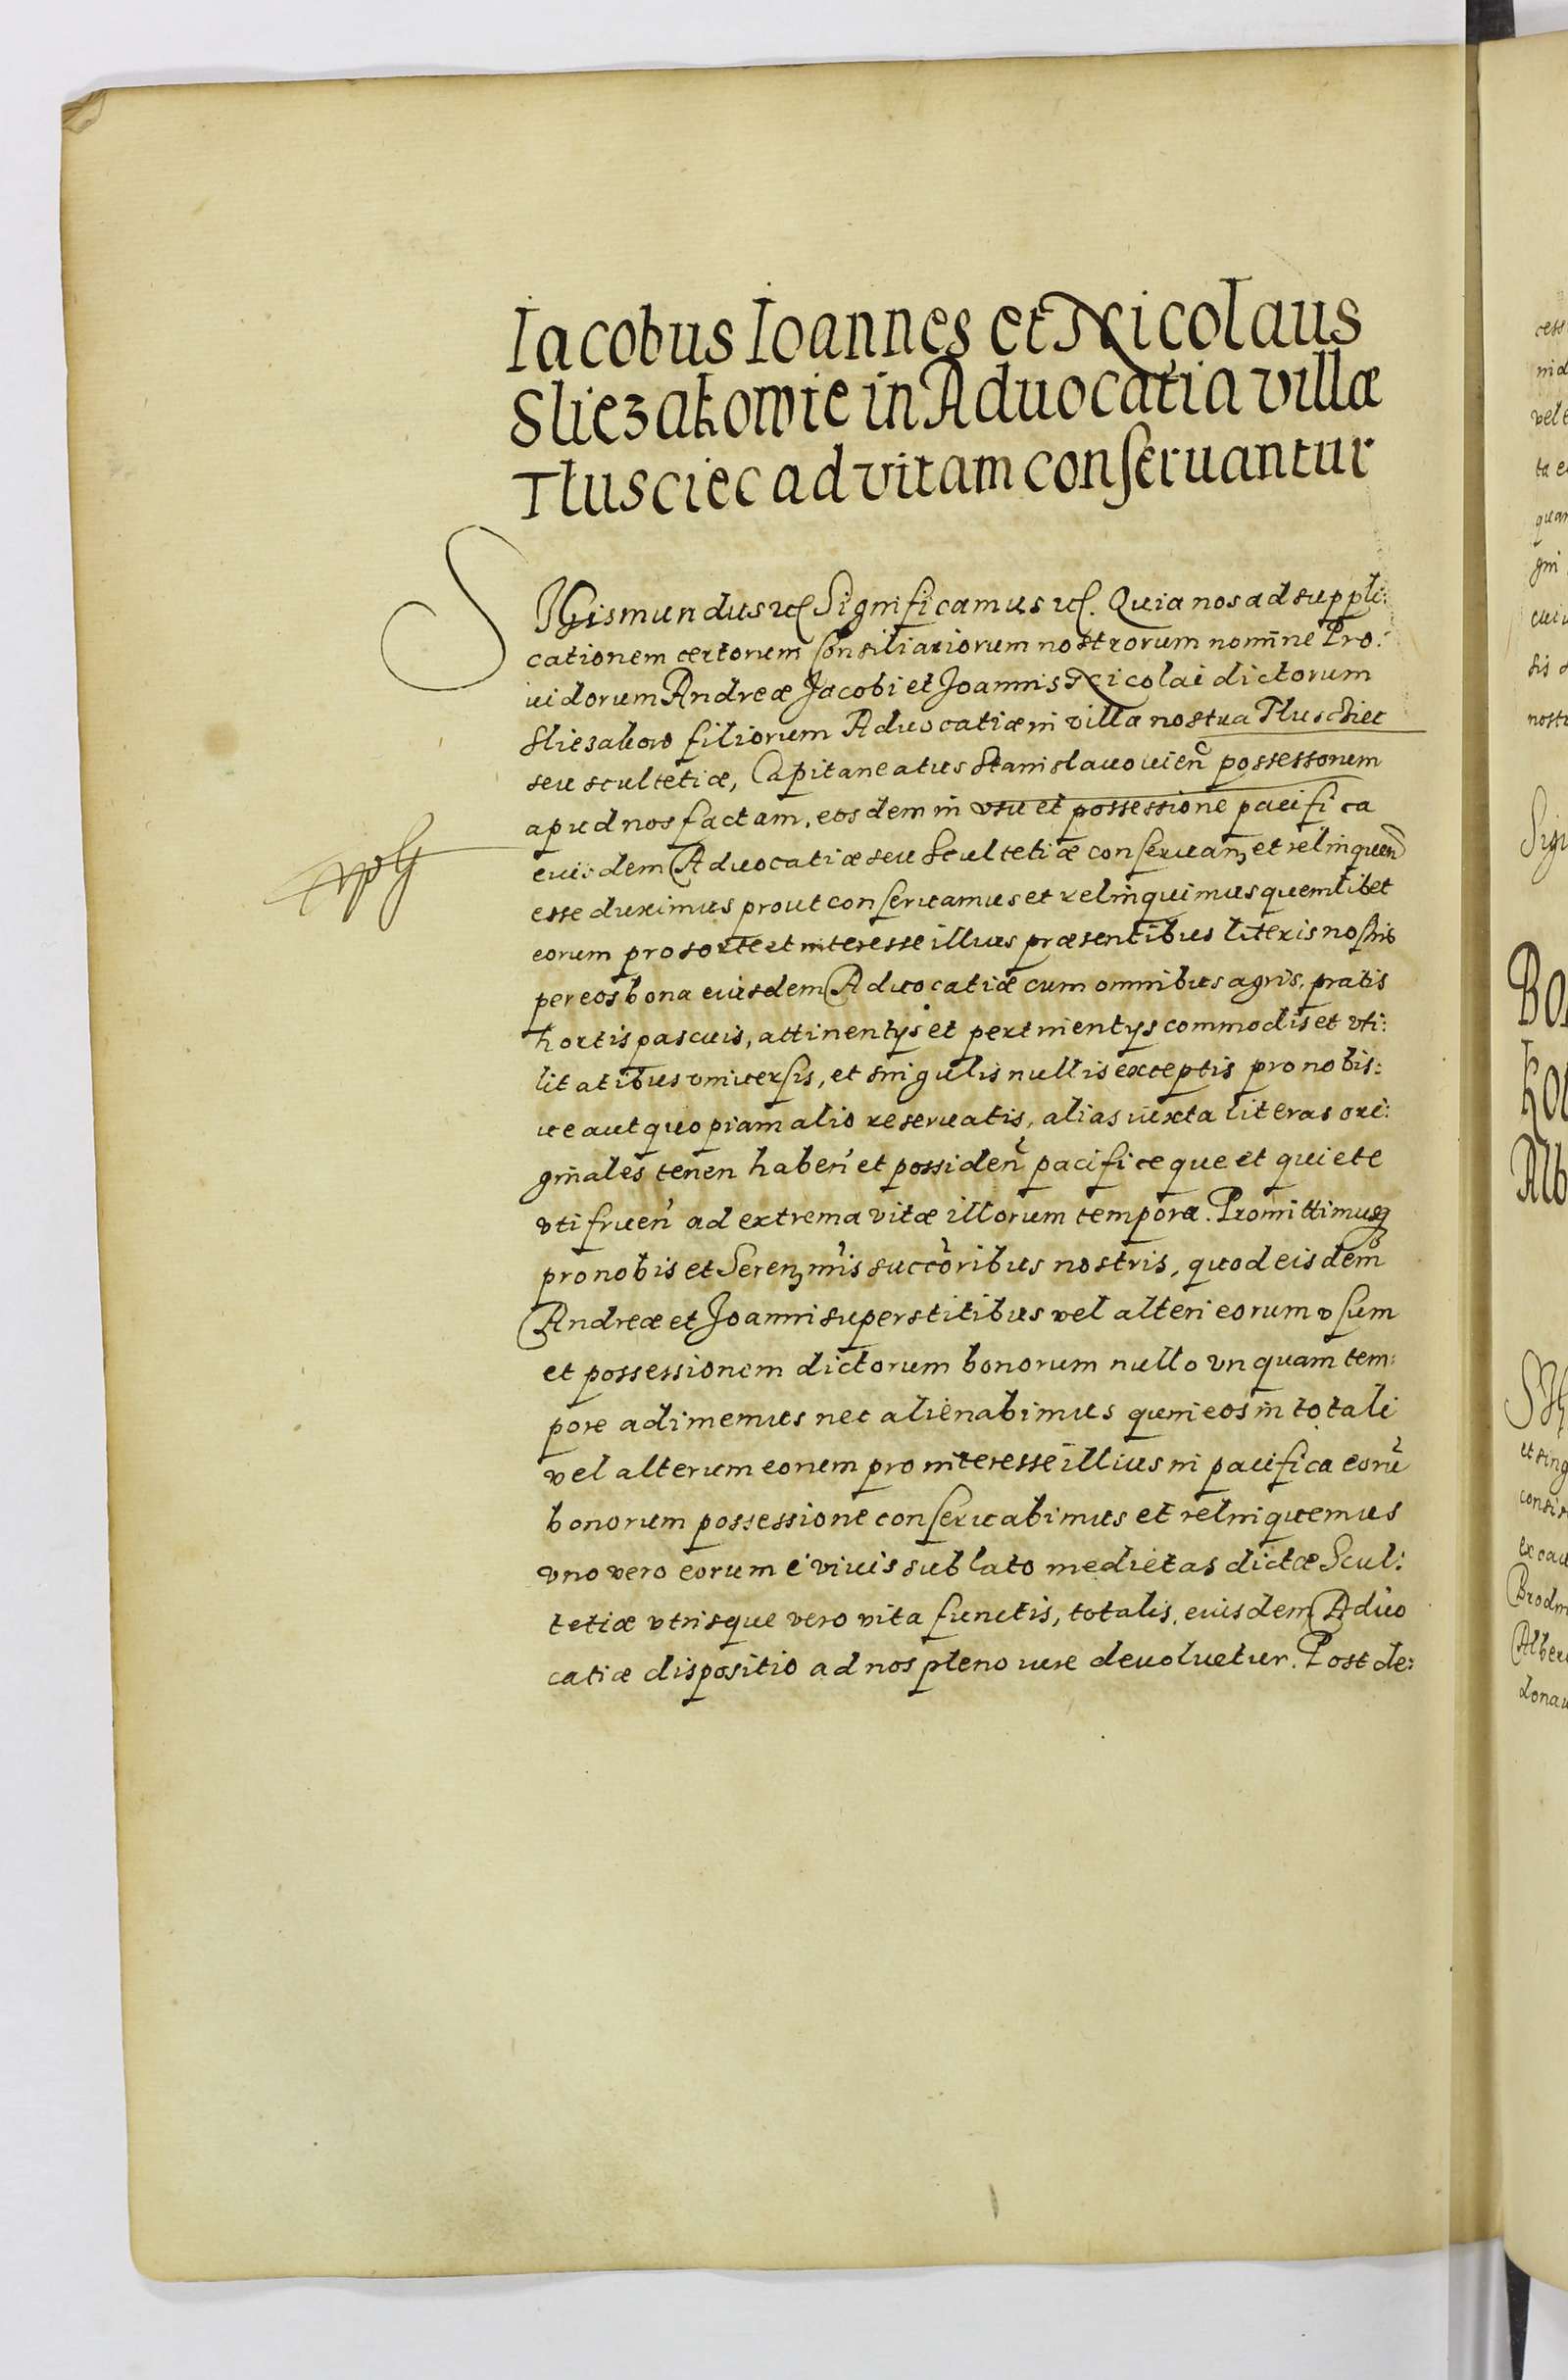 Iacobus Ioannes et Nicolaus
Sliezakowie in Aduocatia villæ
Tłusciec ad vitam conseruantur
SIGismundus etc Significamus etc. Quia nos ad suppli:
cationem certorum Consiliariorum nostrorum nomine Pro:
uidorum Andreæ Jacobi et Joannis Nicolai dictorum
Sliezakow filiorum Aduocatiæ in villa nostra Tluschiec
seu scultetiæ, Capitaneatus Stanislauouien̄ possessorum
apud nos factam, eosdem in vsu et possessione pacifica
euisdem Aduocatiæ seu Scultetiæ conseruan; et relinquen̄
esse duximus prout conseruamus et relinquimus quemlibet
eorum pro sorte et interesse illius præsentibus literis nostris
per eos bona euisdem Aduocatiæ cum omnibus agris, pratis
hortis pascuis, attinentys et pertinentys commodis et vti:
litatibus vniuersis, et singulis nullis exceptis pro nobis:
ue aut quopiam alio reseruatis, alias iuxta literas ori:
ginales tenen haben̄ et possiden̄ pacifice que et quiete
vti fruen̄ ad extrema vitæ illorum tempora. Promittimusq;
pro nobis et Seren; m̄is succ̄oribus nostris, quod eisdem
Andreæ et Joanni superstitibus vel alteri eorum vsum
et possessionem dictorum bonorum nullo vnquam tem:
pore adimemus nec alienabimus quin eos in totali
vel alterum eorum pro interesse illius in pacifica eorū
bonorum possessione conseruabimus et relinquemus
vno vero eorum e viuis sublato medietas dictæ Scul:
tetiæ vtrisque vero vita functis, totalis, euisdem Aduo
catiæ dispositio ad nos pleno iure deuoluetur. Post de: